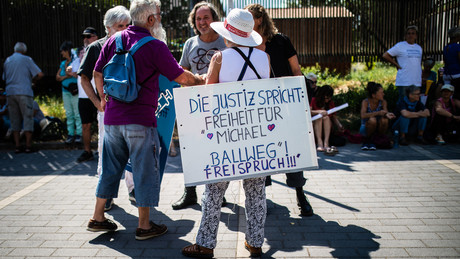 DIE JUSTIZ SPRICHT:
FREIHEIT FÜR
"♥MICHAEL ♥
BALLWEG"!
FREISPRUCH!!!